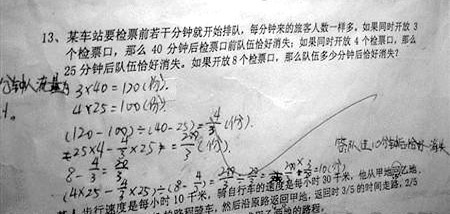 13、某车站要检票前若干分钟就开始排队，每分钟来的旅客人数一样多。如果同时开放 3
个检票口，那么 40 分钟后检票口前队伍恰好消失；如果同时开放 4 个检票口，那么
25 分钟后队伍恰好消失。如果开放 8 个检票口，那么队伍多少分钟后恰好消失？
3×40=120(份).
4×25=100(份).
(120-100)÷(40-25)=4/3(份).
=25×4-4/3×25=200/3(份).
8-4/3=20/3
(4×25-4/3×25)÷(8-4/3)=200/3÷20/3=10(份)
答:队伍10分钟后恰好消失
步行速度是每小时 10 千米，骑自行车的速度是每小时 30 千米，他从甲地 乙地
骑车，然后沿原路返回甲地，返回时 3/5 的时间走路，2/5
的路程。